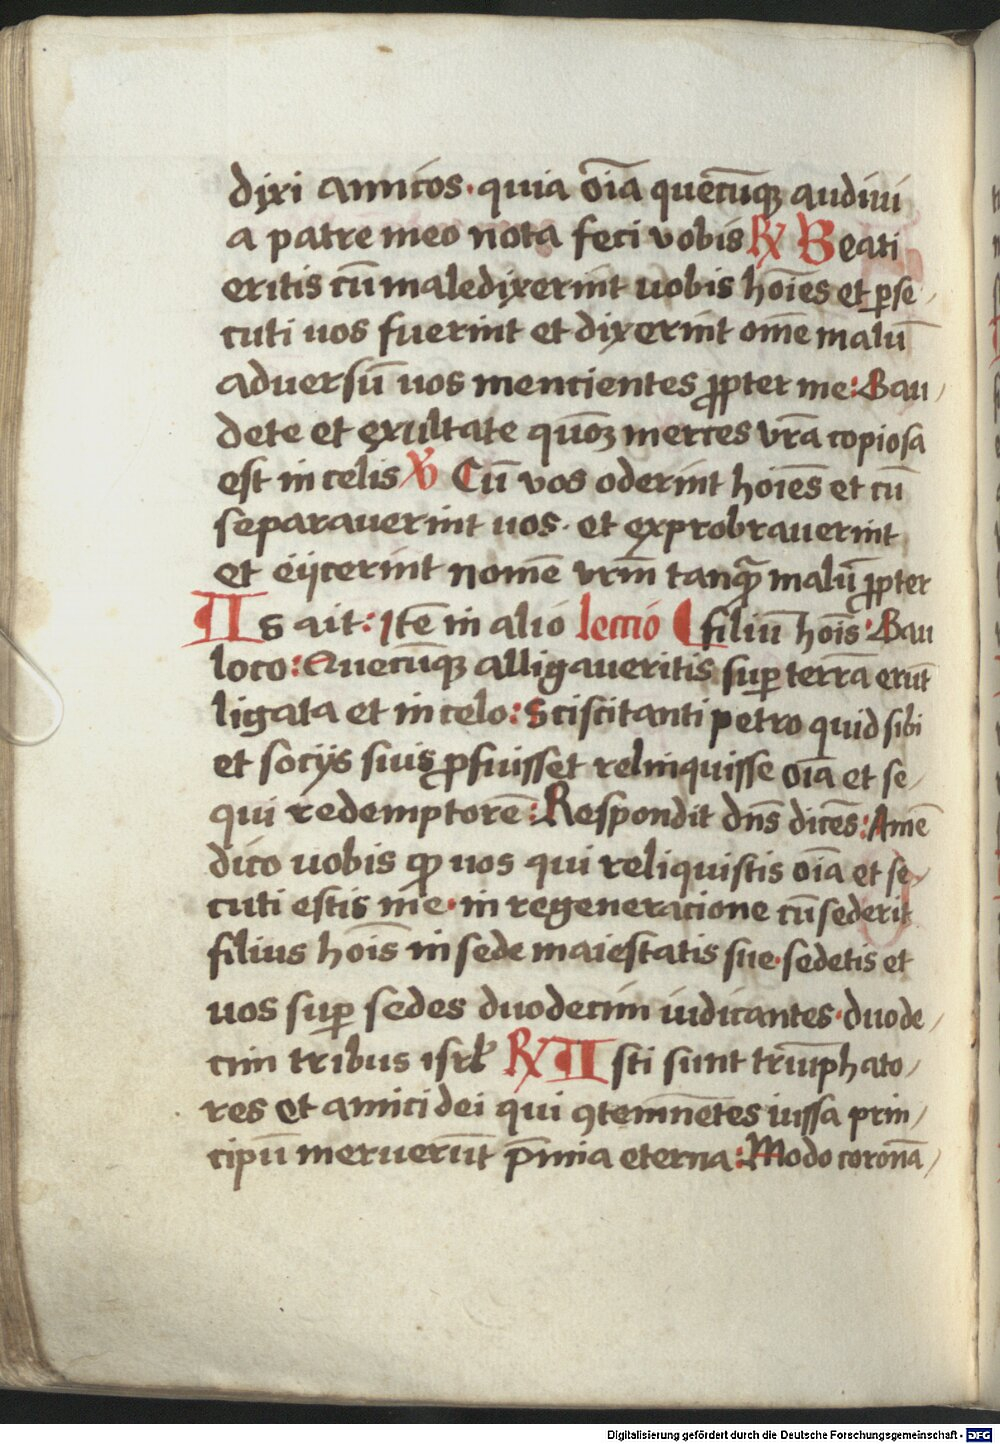 dixi amicos · quia o͞ia quecu͞nqꝫ audiui
a patre meo nota feci vobis ℟ Beati
eritis cu͞ maledixerint uobis ho͞ies et ꝑse
cuti uos fuerint et dixerint om͞e malu͞
aduersu͞ uos mencientes ꝓpter me: Gau/
dete et exultate quo͞ꝫ merces vr͞a copiosa
est in celis ℣ Cu͞ vos oderint hoi͞es et cu͞
separauerint uos · et exprobrauerint
et eijcerint nome͞ vrm͞ tanqua͞ malu͞ ꝓpter
IIs ait: Ite͞ in alio lectio ⸿ filiu͞ ho͞is · Gau
loco: Quecu͞qꝫ alligaueritis suꝑ terra͞ eru͞t
ligata et in celo: Sciscitanti petro quid sibi
et socijs suis ꝓfuisset relinquisse o͞ia et se/
qui redemptore͞: Respondit dn͞s dice͞s: Ame͞
dico uobis ꝙ uos qui reliquistis o͞ia et se/
cuti estis me · in regeneracione cu͞ sederit
filius ho͞is in sede maiestatis sue · sedetis et
uos suꝑ sedes duodecim iudicantes · duode/
cim tribus isrl̵ ℟ IIsti sunt triu͞phato/
res et amici dei qui ꝯtemne͞tes iussa prin/
cipu͞ meruerun͞t p͞mia eterna: Modo corona͞/
Digitalisierung gefördert durch die Deutsche Forschungsgemeinschaft - DFG